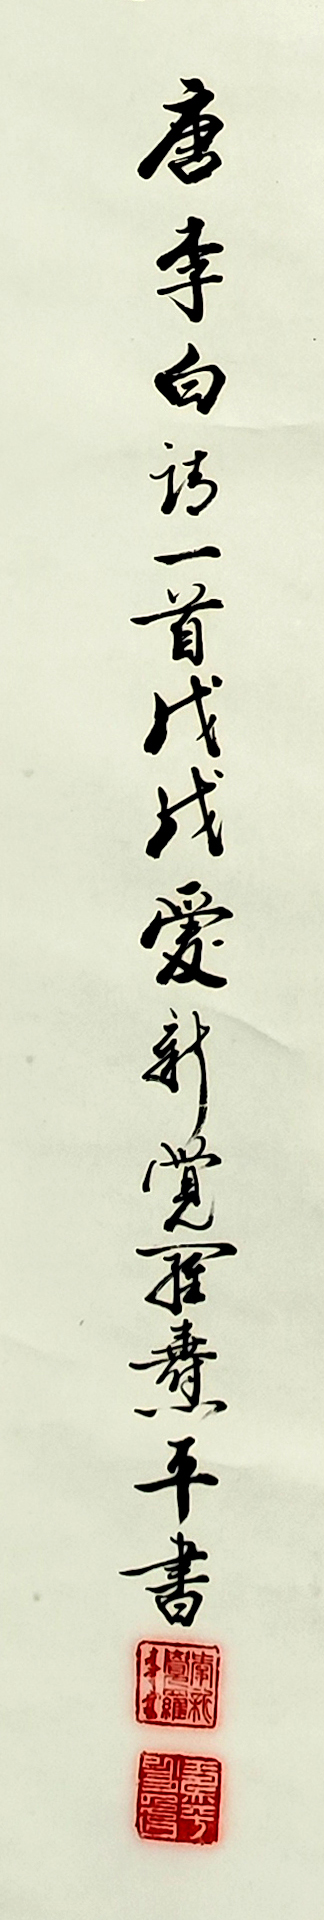 唐李白詩一首戊戌愛新覚羅燾平書
愛新覺羅